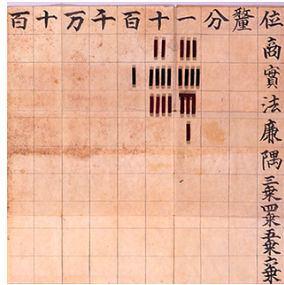 百十万千百十一分釐位
商
實
法
廉
隅
三乗
四乗
五乗
六乗